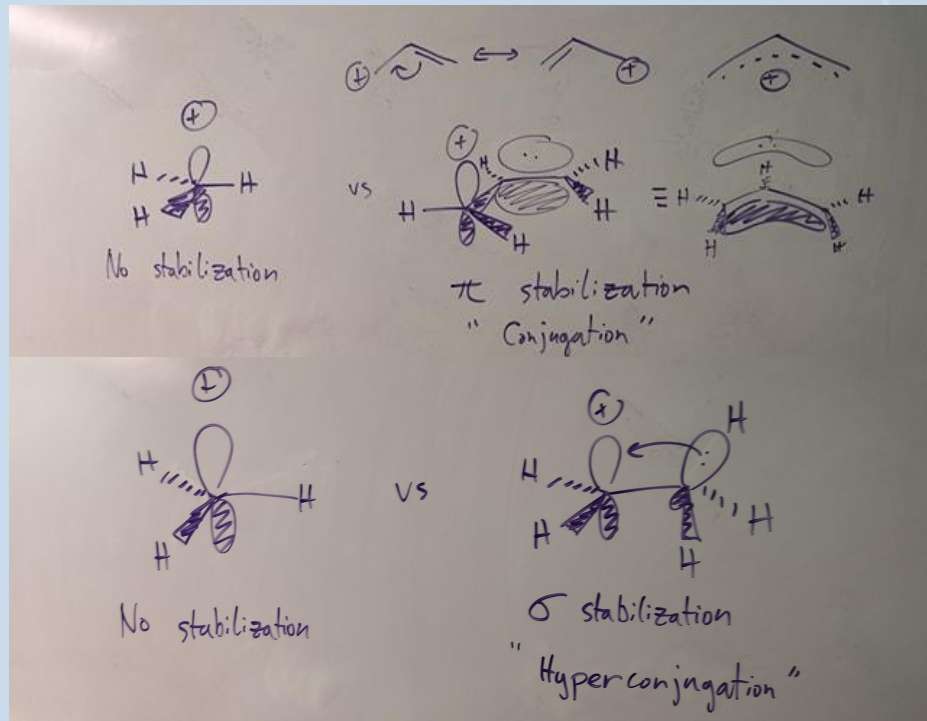 ⊕ ↔ ⊕ ⊕
⊕
H H
H
No stabilization
vs
⊕
H H
H H
H
≡
H
H H
H H
π stabilization
" Conjugation "
⊕
H
H
H
No stabilization
vs
⊕
H
H
H
H
H
σ stabilization
" Hyperconjugation "